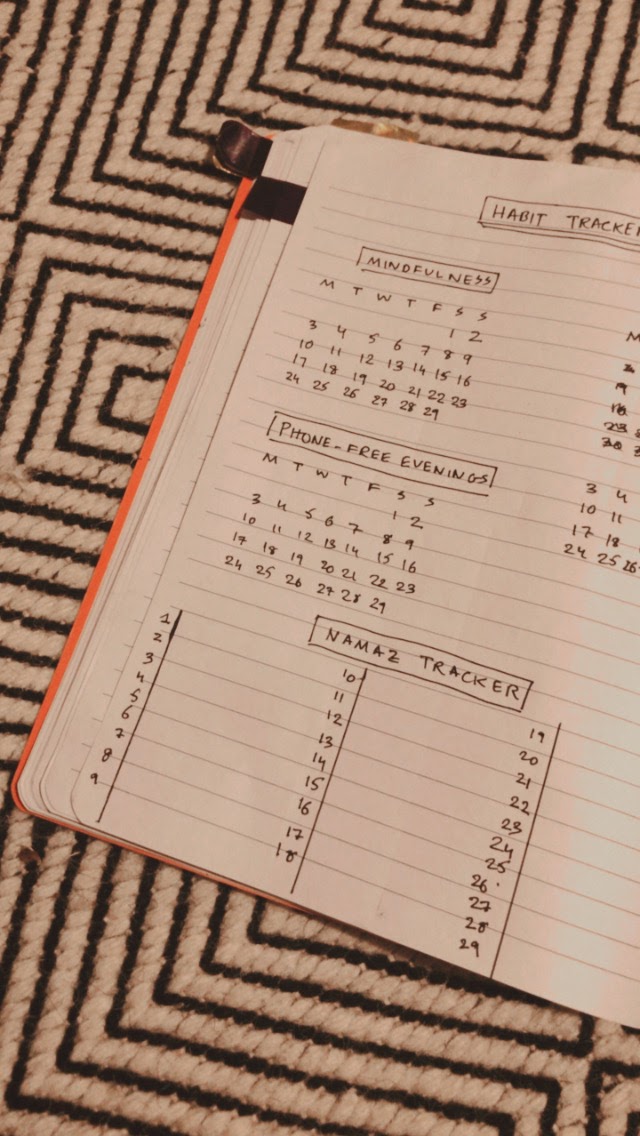 HABIT TRACKER
MINDFULNESS
M T W T F S S
1 2
3 4 5 6 7 8 9
10 11 12 13 14 15 16
17 18 19 20 21 22 23
24 25 26 27 28 29
PHONE-FREE EVENINGS
M T W T F S S
1 2
3 4 5 6 7 8 9
10 11 12 13 14 15 16
17 18 19 20 21 22 23
24 25 26 27 28 29
M
9
16
23
30
3 4
10 11
17 18
24 25 26
NAMAZ TRACKER
1
2
3
4
5
6
7
8
9
10
11
12
13
14
15
16
17
18
19
20
21
22
23
24
25
26
27
28
29